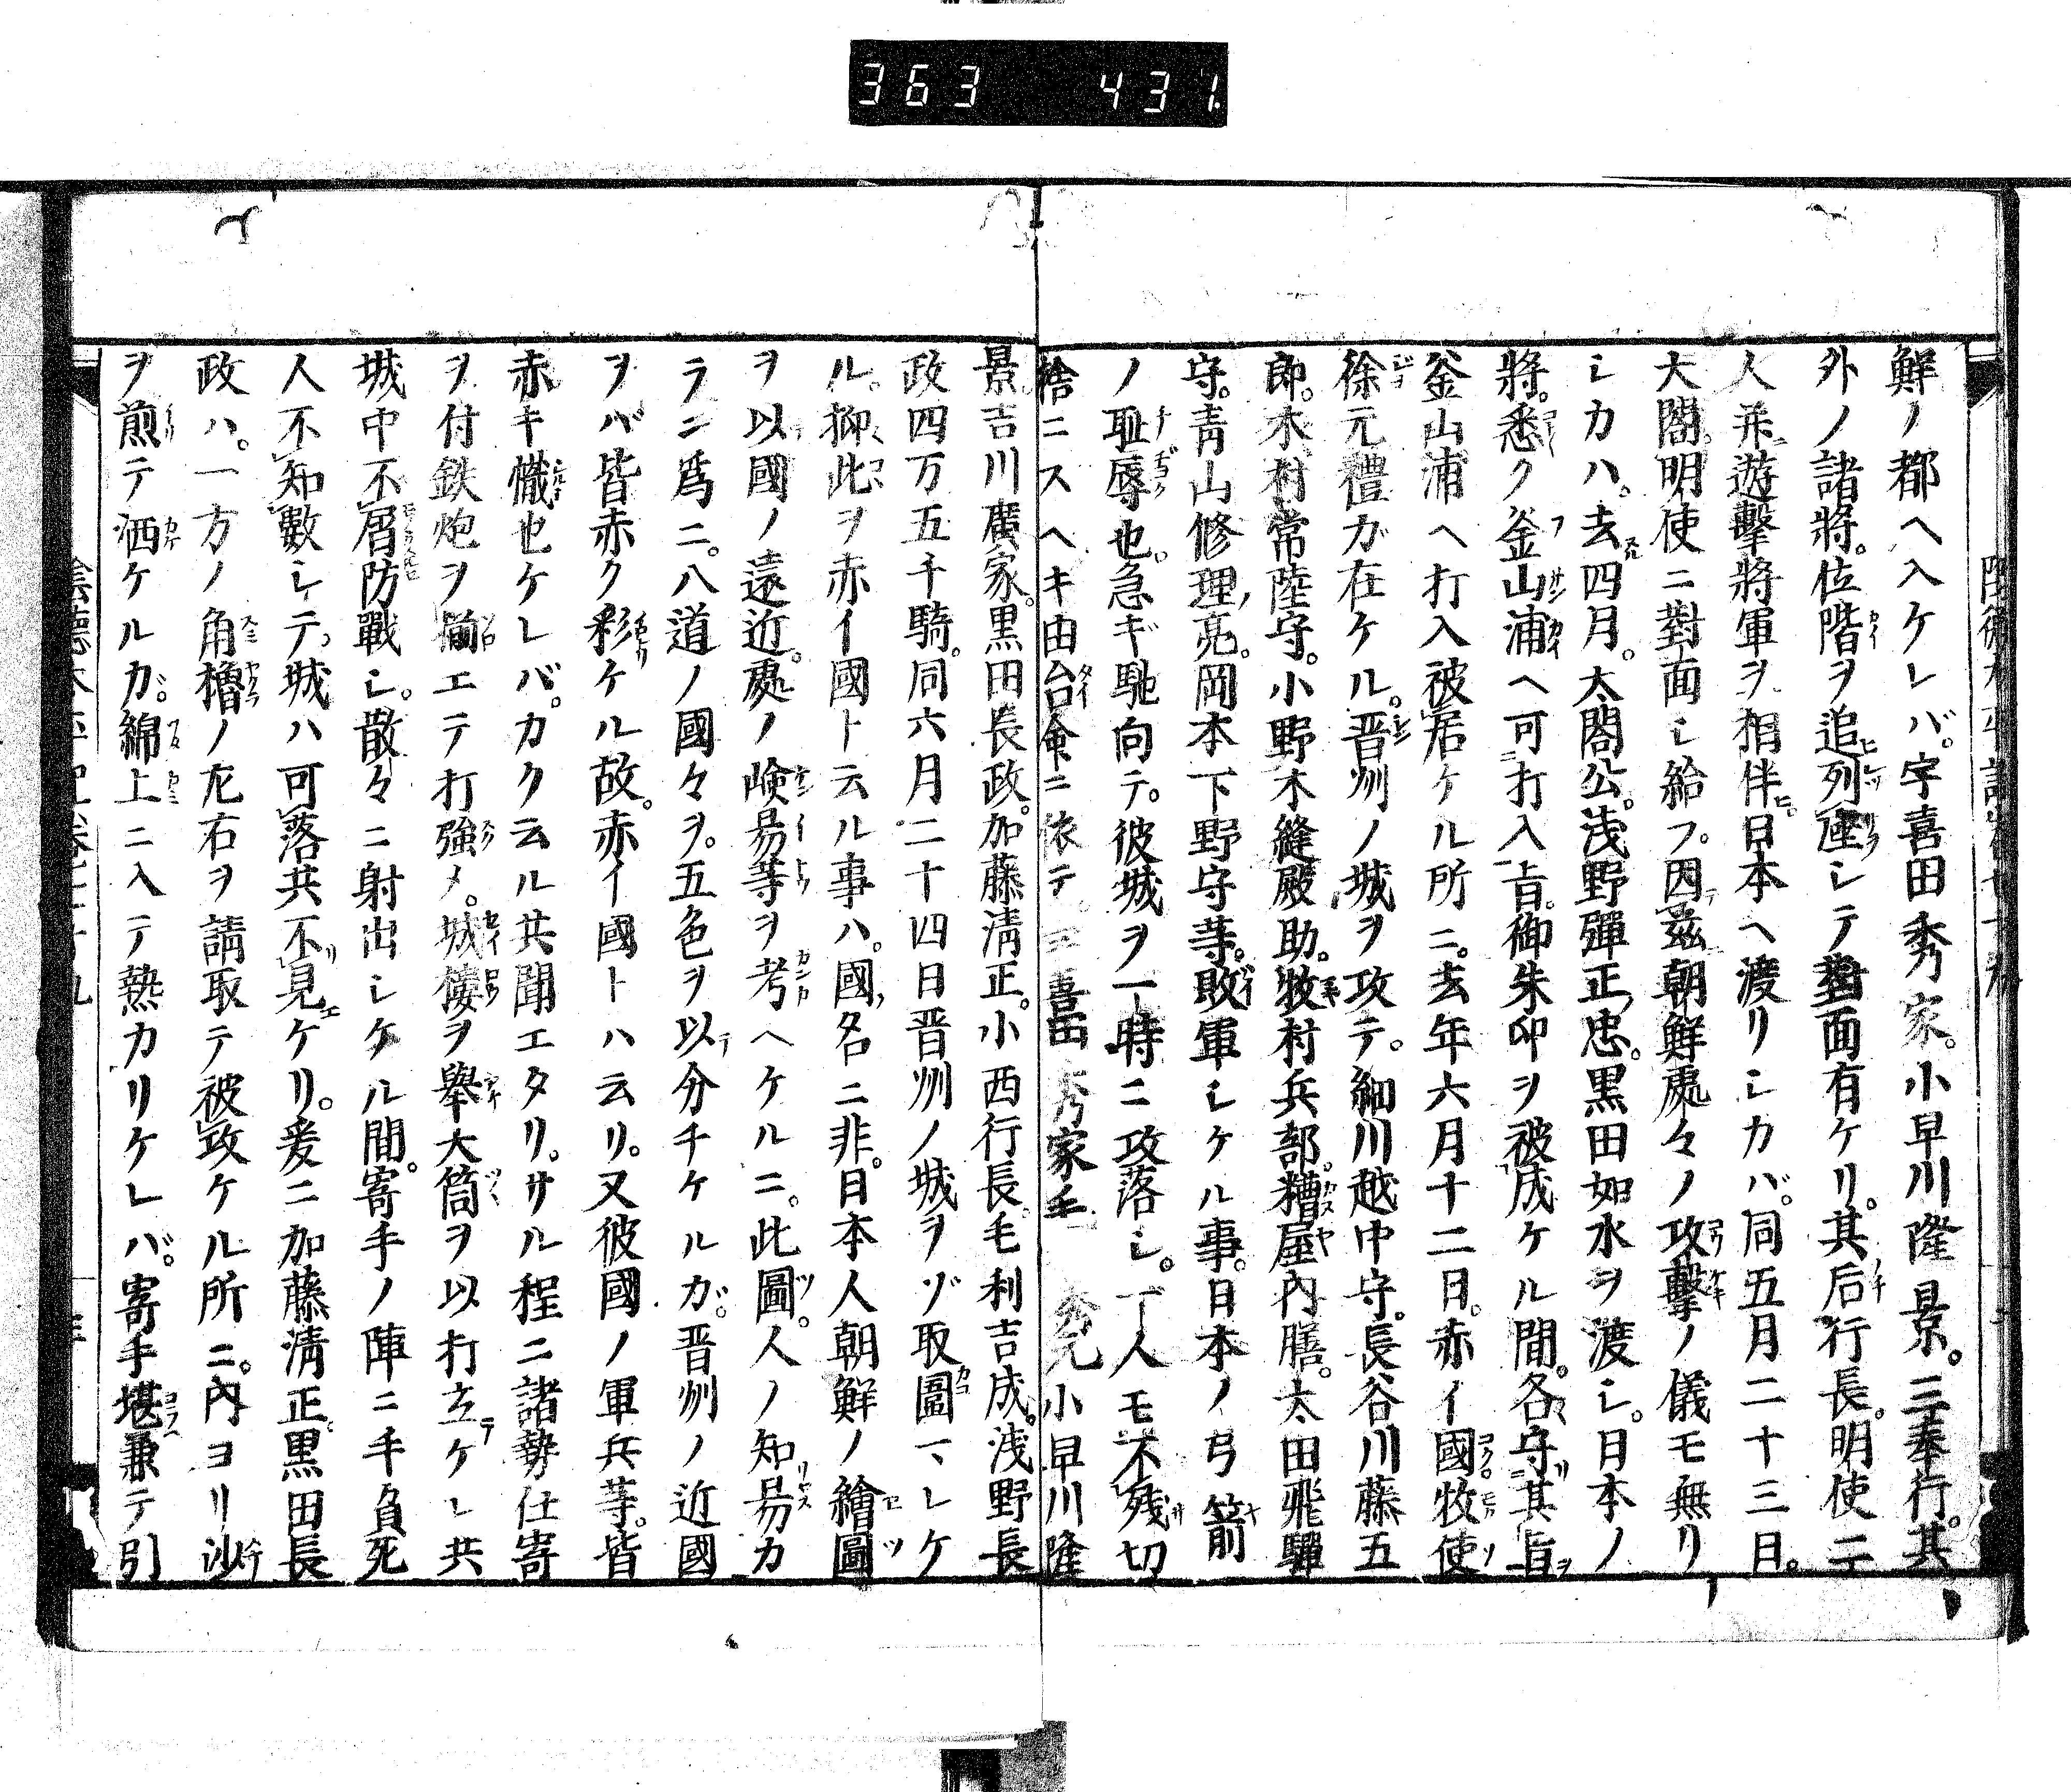 363 431
鮮ノ都ヘ入ケレバ。宇喜田秀家。小早川隆景。三奉行。其
外ノ諸将。位階ヲ追列座シテ對面有ケリ。其后行長。明使二
人并遊撃將軍ヲ相伴日本ヘ渡リシカバ。同五月二十三日。
大閤明使ニ對面シ給フ。因茲朝鮮處々ノ攻撃ノ儀モ無リ
シカハ。去四月。太閤公。浅野彈正忠。黒田如水ヲ渡シ。日本ノ
將。悉ク釜山浦ヘ可打入旨。御朱印ヲ被成ケル間。各守其旨
釜山浦ヘ打入被居ケル所ニ。去年六月十二日。赤イ國牧使
徐元禮ガ在ケル。晋州ノ城ヲ攻テ。細川越中守。長谷川藤五
郎。木村常陸守。小野木縫殿助。牧村兵部。糟屋内膳。太田飛騨
守。青山修理亮。岡本下野守等。敗軍シケル事。日本ノ弓箭
ノ耻辱也。急ギ馳向テ。彼城ヲ一時ニ攻落シ。一人モ不残切
捨ニスヘキ由台命ニ依テ。喜田秀家毛 秀元小早川隆
景。吉川廣家。黒田長政。加藤淸正。小西行長。毛利吉成。浅野長
政四万五千騎。同六月二十四日晋州ノ城ヲゾ取圖マレケ
ル。抑此ヲ赤イ國ト云ル事ハ。國ノ名ニ非。日本人朝鮮ノ繪圖
ヲ以國ノ遠近。處ノ嶮易等ヲ考ヘケルニ。此圖。人ノ知易カ
ラン爲ニ。八道ノ國々ヲ。五色ヲ以分チケルガ。晋州ノ近國
ヲバ皆赤ク彩ケル故。赤イ國トハ云リ。又彼國ノ軍兵等。皆
赤キ幟也ケレバ。カク云ル共聞エタリ。サル程ニ諸勢仕寄
ヲ付鉄炮ヲ揃エテ打強メ。城樓ヲ舉大筒ヲ以打立ケレ共
城中不屑防戰シ。散々ニ射出シケル間。寄手ノ陣ニ手負死
人不知數シテ。城ハ可落共不見ケリ。爰ニ加藤淸正黒田長
政ハ。一方ノ角櫓ノ左右ヲ請取テ被攻ケル所ニ。内ヨリ沙
ヲ煎テ洒ケルガ。綿上ニ入テ熱カリケレバ。寄手堪兼テ引